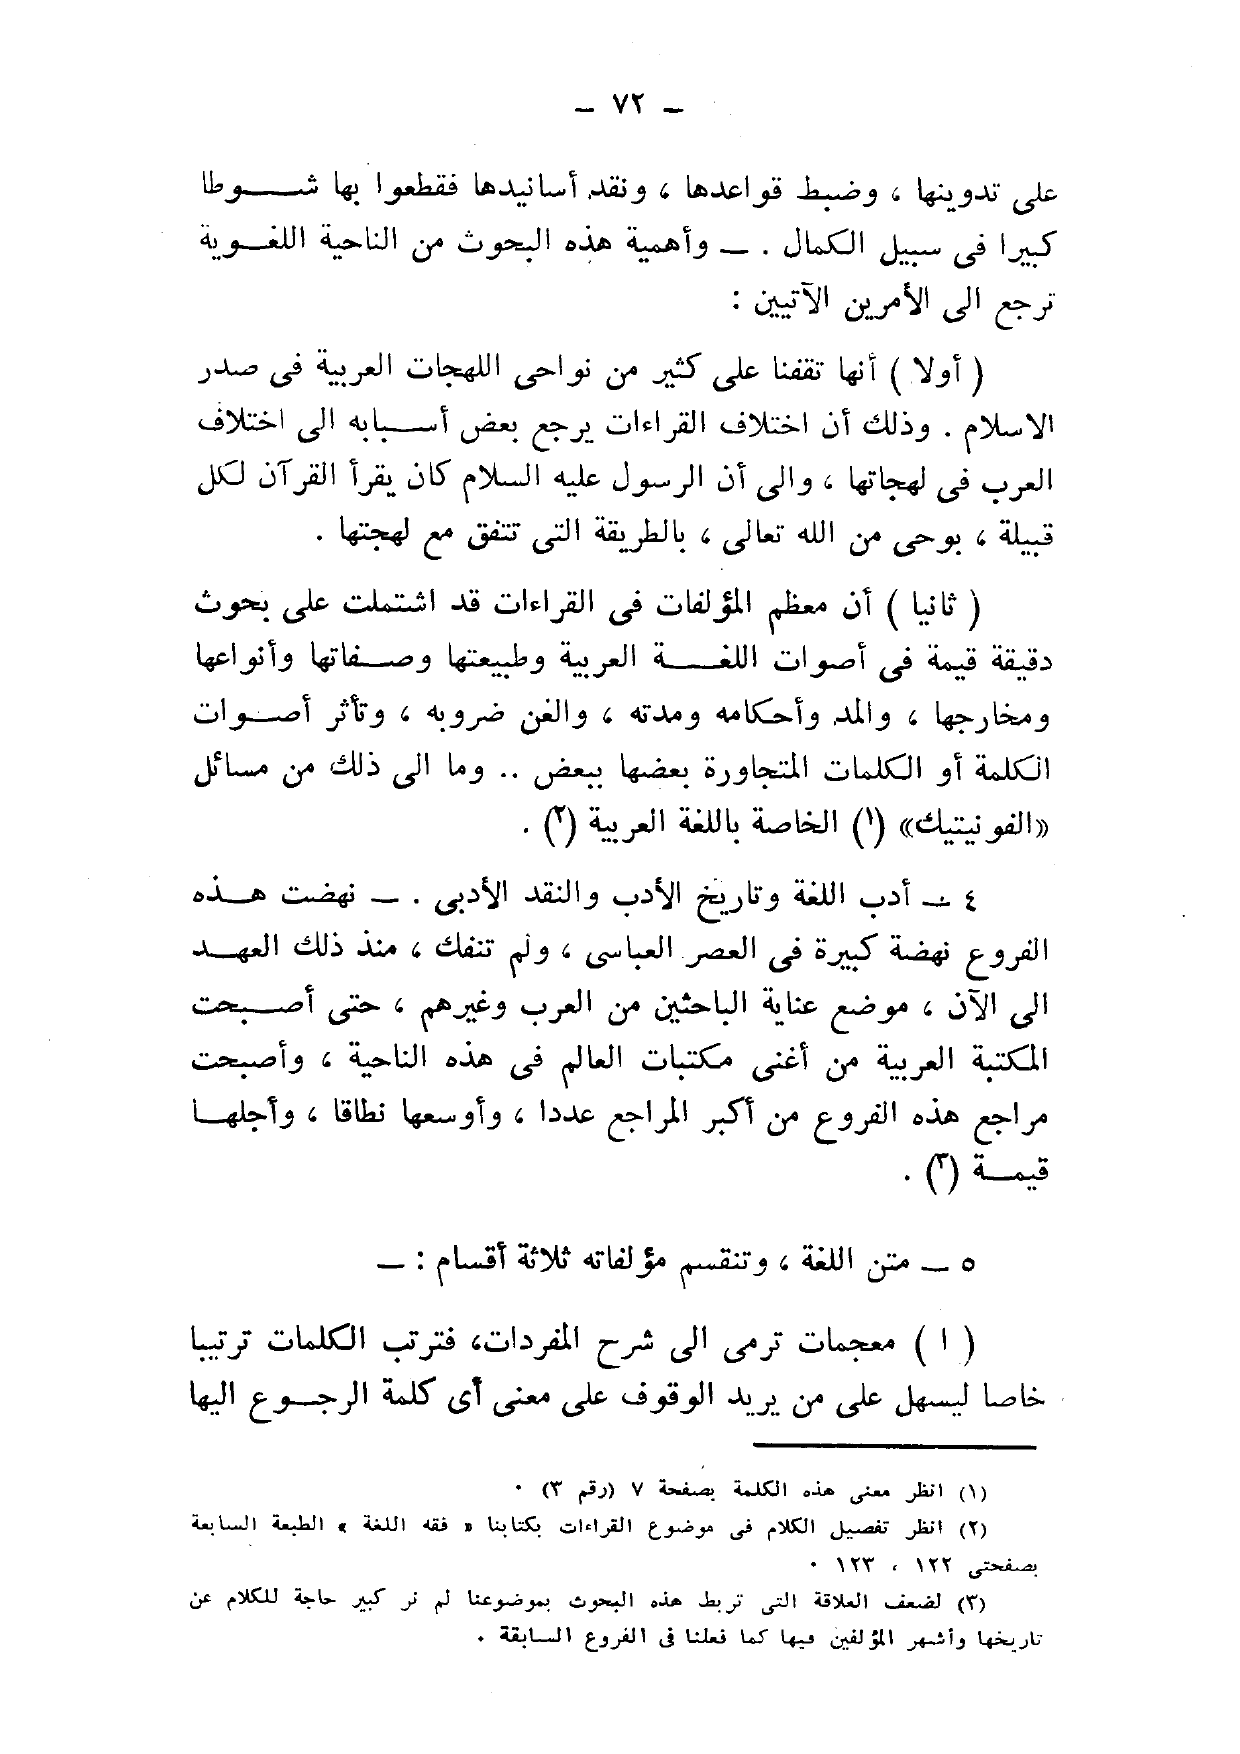 — ٧٢ —
على تدوينها ، وضبط قواعدها ، ونقد أسانيدها فقطعوا بها شوطا
كبيرا فى سبيل الكمال . — وأهمية هذه البحوث من الناحية اللغوية
ترجع الى الأمرين الآتيين :
( أولا ) أنها تقفنا على كثير من نواحى اللهجات العربية فى صدر
الاسلام . وذلك أن اختلاف القراءات يرجع بعض أسبابه الى اختلاف
العرب فى لهجاتها ، والى أن الرسول عليه السلام كان يقرأ القرآن لكل
قبيلة ، بوحى من الله تعالى ، بالطريقة التى تتفق مع لهجتها .
( ثانيا ) أن معظم المؤلفات فى القراءات قد اشتملت على بحوث
دقيقة قيمة فى أصوات اللغة العربية وطبيعتها وصفاتها وأنواعها
ومخارجها ، والمد وأحكامه ومدته ، والغن ضروبه ، وتأثر أصوات
الكلمة أو الكلمات المتجاورة بعضها ببعض .. وما الى ذلك من مسائل
«الفونيتيك» (١) الخاصة باللغة العربية (٢) .
٤ — أدب اللغة وتاريخ الأدب والنقد الأدبى . — نهضت هذه
الفروع نهضة كبيرة فى العصر العباسى ، ولم تنفك ، منذ ذلك العهد
الى الآن ، موضع عناية الباحثين من العرب وغيرهم ، حتى أصبحت
المكتبة العربية من أغنى مكتبات العالم فى هذه الناحية ، وأصبحت
مراجع هذه الفروع من أكبر المراجع عددا ، وأوسعها نطاقا ، وأجلها
قيمة (٣) .
٥ — متن اللغة ، وتنقسم مؤلفاته ثلاثة أقسام : —
( ١ ) معجمات ترمى الى شرح المفردات، فترتب الكلمات ترتيبا
خاصا ليسهل على من يريد الوقوف على معنى أى كلمة الرجوع اليها
(١) انظر معنى هذه الكلمة بصفحة ٧ (رقم ٣) .
(٢) انظر تفصيل الكلام فى موضوع القراءات بكتابنا « فقه اللغة » الطبعة السابعة
بصفحتى ١٢٢ ، ١٢٣ .
(٣) لضعف العلاقة التى تربط هذه البحوث بموضوعنا لم نر كبير حاجة للكلام عن
تاريخها وأشهر المؤلفين فيها كما فعلنا فى الفروع السابقة .